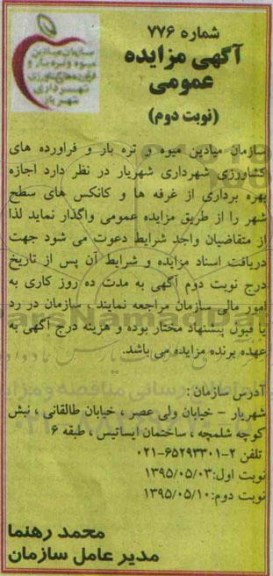 شماره ۷۷۶
آگهی مزایده
عمومی
(نوبت دوم)
سازمان میادین
میوه و تره بار و
فرآورده های کشاورزی
شهرداری
شهریار
سازمان میادین میوه و تره بار و فرآورده های
کشاورزی شهرداری شهریار در نظر دارد اجازه
بهره برداری از غرفه ها و کانکس های سطح
شهر را از طریق مزایده عمومی واگذار نماید لذا
از متقاضیان واجد شرایط دعوت می شود جهت
دریافت اسناد مزایده و شرایط آن پس از تاریخ
درج نوبت دوم آگهی به مدت ده روز کاری به
امور مالی سازمان مراجعه نمایند. سازمان در رد
یا قبول پیشنهاد مختار بوده و هزینه درج آگهی به
عهده برنده مزایده می باشد.
آدرس سازمان :
شهریار - خیابان ولی عصر ، خیابان طالقانی ، نبش
کوچه شلمچه ، ساختمان ایساتیس ، طبقه ۶
تلفن ۲-۶۵۲۹۳۳۰۱-۰۲۱
نوبت اول:۱۳۹۵/۰۵/۰۳
نوبت دوم:۱۳۹۵/۰۵/۱۰
محمد رهنما
مدیر عامل سازمان